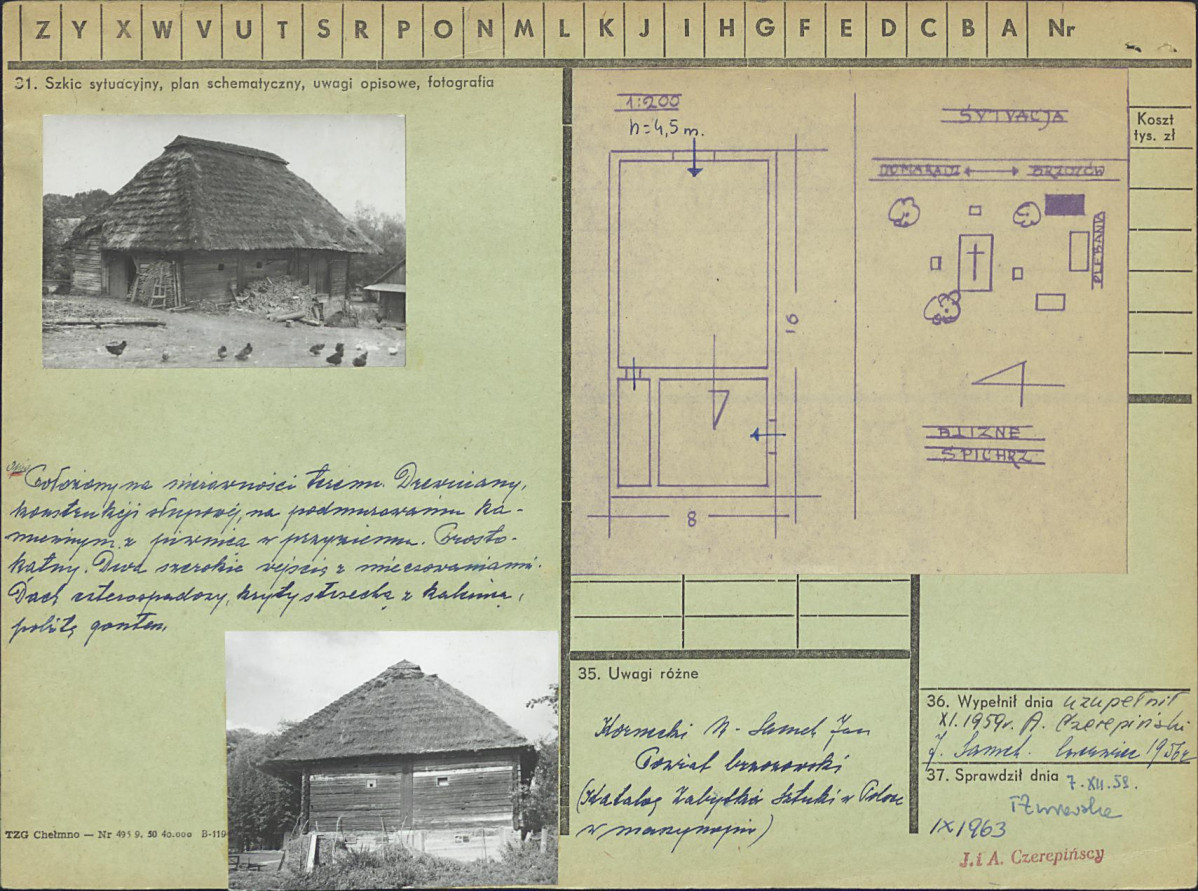 Z Y X W V U T S R P O N M L K J I H G F E D C B A Nr
31. Szkic sytuacyjny, plan schematyczny, uwagi opisowe, fotografia
Położony na nierówności terenu. Drewniany,
konstrukcji słupowej, na podmurowaniu ka-
miennym z piwnicą w przyziemiu. Prosto-
kątny. Dwa szerokie wejścia z mieczowaniami.
Dach czterospadowy, kryty strzechą z kalenicą,
pobitą gontem.
TZG Chełmno — Nr 495 9. 50 40.000 B-119
1:200
h=4,5 m.
16
8
SYTUACJA
DOMARADZ BRZOZÓW
PLEBANIA
BLIZNE
SPICHRZ
Koszt
tys. zł
35. Uwagi różne
Kornecki M - Samek Jan
Powiat brzozowski
(Katalog Zabytków Sztuki w Polsce
w maszynopisie)
36. Wypełnił dnia uzupełnił
XI.1959r. A. Czerepiński
J. Samek. Czerwiec 1956r
37. Sprawdził dnia 7.XII.59.
IX 1963
J. i A. Czerepińscy